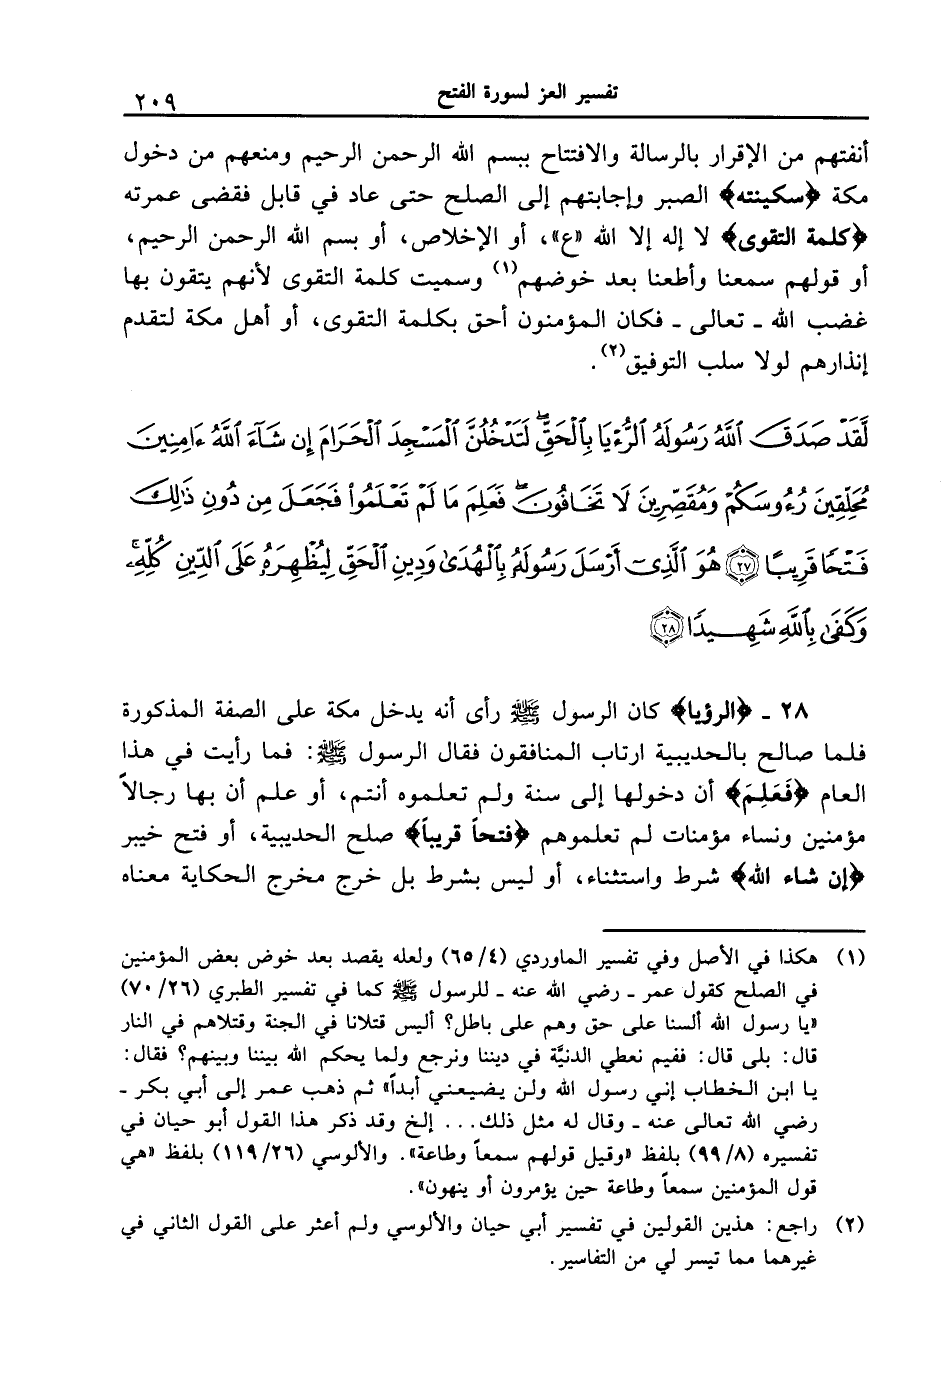 تفسير العز لسورة الفتح
٢٠٩
أنفتهم من الإقرار بالرسالة والافتتاح ببسم الله الرحمن الرحيم ومنعهم من دخول
مكة ﴿سكينته﴾ الصبر وإجابتهم إلى الصلح حتى عاد في قابل فقضى عمرته
﴿كلمة التقوى﴾ لا إله إلا الله «ع»، أو الإخلاص، أو بسم الله الرحمن الرحيم،
أو قولهم سمعنا وأطعنا بعد خوضهم(١) وسميت كلمة التقوى لأنهم يتقون بها
غضب الله ـ تعالى ـ فكان المؤمنون أحق بكلمة التقوى، أو أهل مكة لتقدم
إنذارهم لولا سلب التوفيق(٢).
لَّقَدْ صَدَقَ ٱللَّهُ رَسُولَهُ ٱلرُّءْيَا بِٱلْحَقِّ ۖ لَتَدْخُلُنَّ ٱلْمَسْجِدَ ٱلْحَرَامَ إِن شَآءَ ٱللَّهُ ءَامِنِينَ
مُحَلِّقِينَ رُءُوسَكُمْ وَمُقَصِّرِينَ لَا تَخَافُونَ ۖ فَعَلِمَ مَا لَمْ تَعْلَمُوا۟ فَجَعَلَ مِن دُونِ ذَٰلِكَ
فَتْحًا قَرِيبًا ۝٢٧ هُوَ ٱلَّذِىٓ أَرْسَلَ رَسُولَهُۥ بِٱلْهُدَىٰ وَدِينِ ٱلْحَقِّ لِيُظْهِرَهُۥ عَلَى ٱلدِّينِ كُلِّهِۦ ۚ
وَكَفَىٰ بِٱللَّهِ شَهِيدًا ۝٢٨
٢٨ ـ ﴿الرؤيا﴾ كان الرسول ﷺ رأى أنه يدخل مكة على الصفة المذكورة
فلما صالح بالحديبية ارتاب المنافقون فقال الرسول ﷺ: فما رأيت في هذا
العام ﴿فَعَلِمَ﴾ أن دخولها إلى سنة ولم تعلموه أنتم، أو علم أن بها رجالاً
مؤمنين ونساء مؤمنات لم تعلموهم ﴿فتحاً قريباً﴾ صلح الحديبية، أو فتح خيبر
﴿إن شاء الله﴾ شرط واستثناء، أو ليس بشرط بل خرج مخرج الحكاية معناه
(١) هكذا في الأصل وفي تفسير الماوردي (٤/ ٦٥) ولعله يقصد بعد خوض بعض المؤمنين
في الصلح كقول عمر ـ رضي الله عنه ـ للرسول ﷺ كما في تفسير الطبري (٢٦/ ٧٠)
«يا رسول الله ألسنا على حق وهم على باطل؟ أليس قتلانا في الجنة وقتلاهم في النار
قال: بلى قال: ففيم نعطي الدنيَّة في ديننا ونرجع ولما يحكم الله بيننا وبينهم؟ فقال:
يا ابن الخطاب إني رسول الله ولن يضيعني أبداً» ثم ذهب عمر إلى أبي بكر ـ
رضي الله تعالى عنه ـ وقال له مثل ذلك... إلخ وقد ذكر هذا القول أبو حيان في
تفسيره (٨/ ٩٩) بلفظ «وقيل قولهم سمعاً وطاعة». والألوسي (٢٦/ ١١٩) بلفظ «هي
قول المؤمنين سمعاً وطاعة حين يؤمرون أو ينهون».
(٢) راجع: هذين القولين في تفسير أبي حيان والألوسي ولم أعثر على القول الثاني في
غيرهما مما تيسر لي من التفاسير.